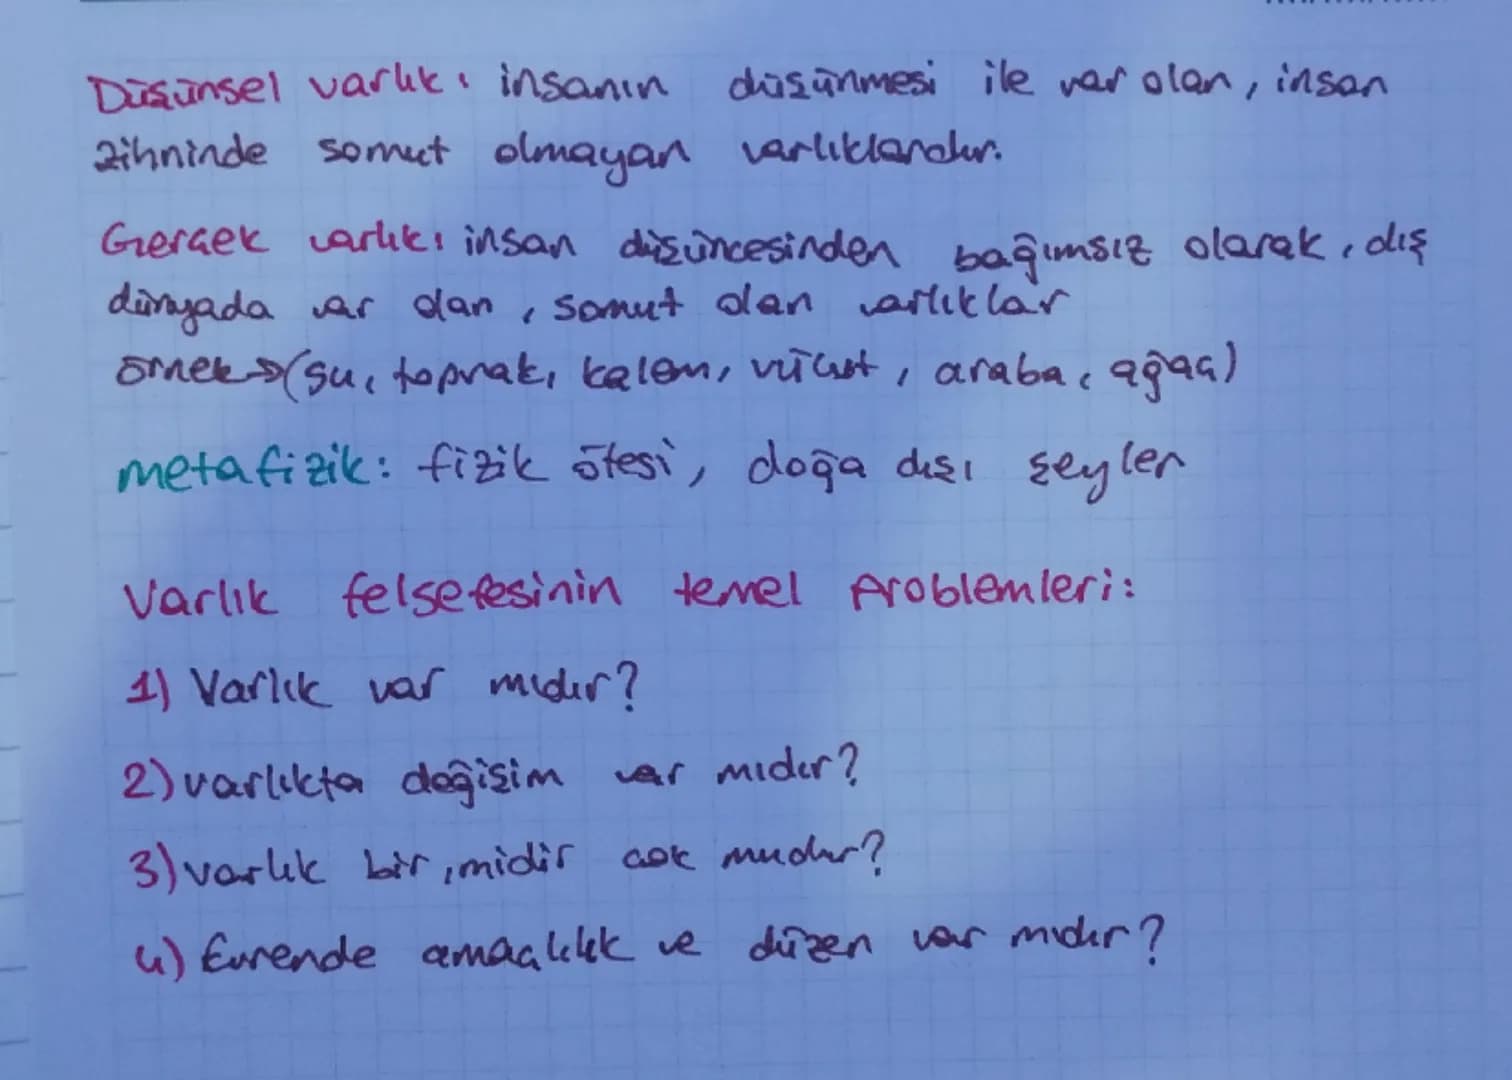 Düşünsel varlık: insanın düşünmesi ile var olan, insan
zihninde somut olmayan varlıklardır.
Gerçek varlık: insan düşüncesinden bağımsız olarak, dış
dünyada var olan, somut olan varlıklar
örnek→(su, toprak, kalem, vücut, araba, ağaç)
metafizik: fizik ötesi, doğa dışı şeyler
Varlık felsefesinin temel Problemleri:
1) Varlık var mıdır?
2) varlıkta değişim var mıdır?
3) varlık bir, midir çok mudur?
4) Evrende amaçlılık ve düzen var mıdır?